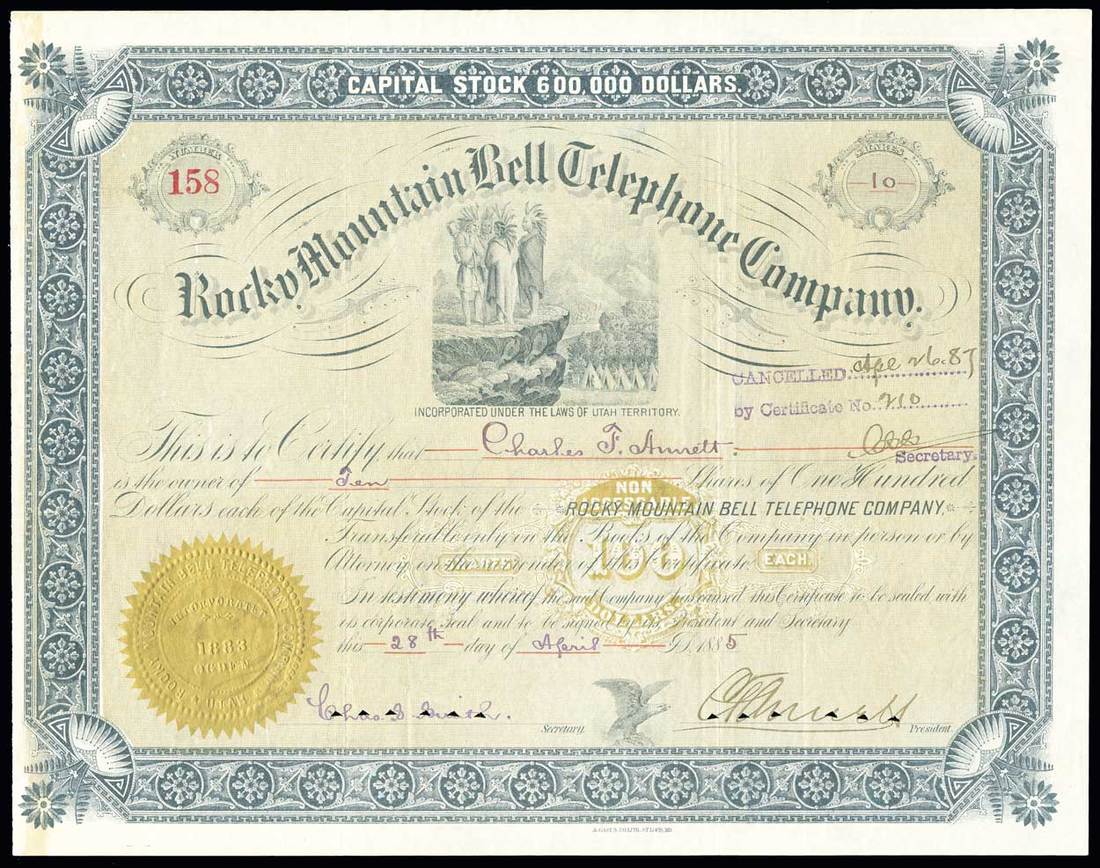 CAPITAL STOCK 600,000 DOLLARS.
NUMBER
158
SHARES
10
Rocky Mountain Bell Telephone Company.
INCORPORATED UNDER THE LAWS OF UTAH TERRITORY.
CANCELLED Apl 26. 87
by Certificate No. 210
Secretary.
This is to Certify that Charles F. Annett.
is the owner of Ten Shares of One Hundred
Dollars each of the Capital Stock of the ROCKY MOUNTAIN BELL TELEPHONE COMPANY,
Transferable only on the Books of the Company in person or by
Attorney on the surrender of this Certificate
NON
ASSESSABLE
SHARES
100
EACH.
DOLLARS
In testimony whereof the said Company has caused this Certificate to be sealed with
its corporate Seal and to be signed by its President and Secretary
this 28th day of April A.D. 1885
ROCKY MOUNTAIN BELL TELEPHONE COMPANY
INCORPORATED
1883
OGDEN
UTAH
Secretary.
President.